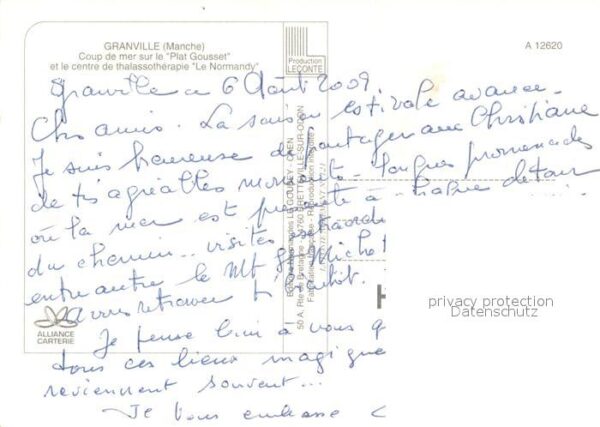 GRANVILLE (Manche)
Coup de mer sur le "Plat Gousset"
et le centre de thalassothérapie "Le Normandy"
Production
LECONTE
A 12620
Granville ce 6 Août 2009.
Chers amis. La saison estivale avance.
Je suis heureuse de partager avec Christiane
de très agréables moments. Longues promenades
où la mer est présente à chaque détour
du chemin.. visites
entre autre le Mt St Michel
vous retrouver
Je pense bien à vous
tous ces lieux magiques
reviennent souvent...
Je vous embrasse
LE GOUBEY - CAEN
50 A, Rte de Bretagne - 14760 BRETTEVILLE-SUR-ODON
Fabrication Française - Reproduction interdite
ALLIANCE
CARTERIE
privacy protection
Datenschutz